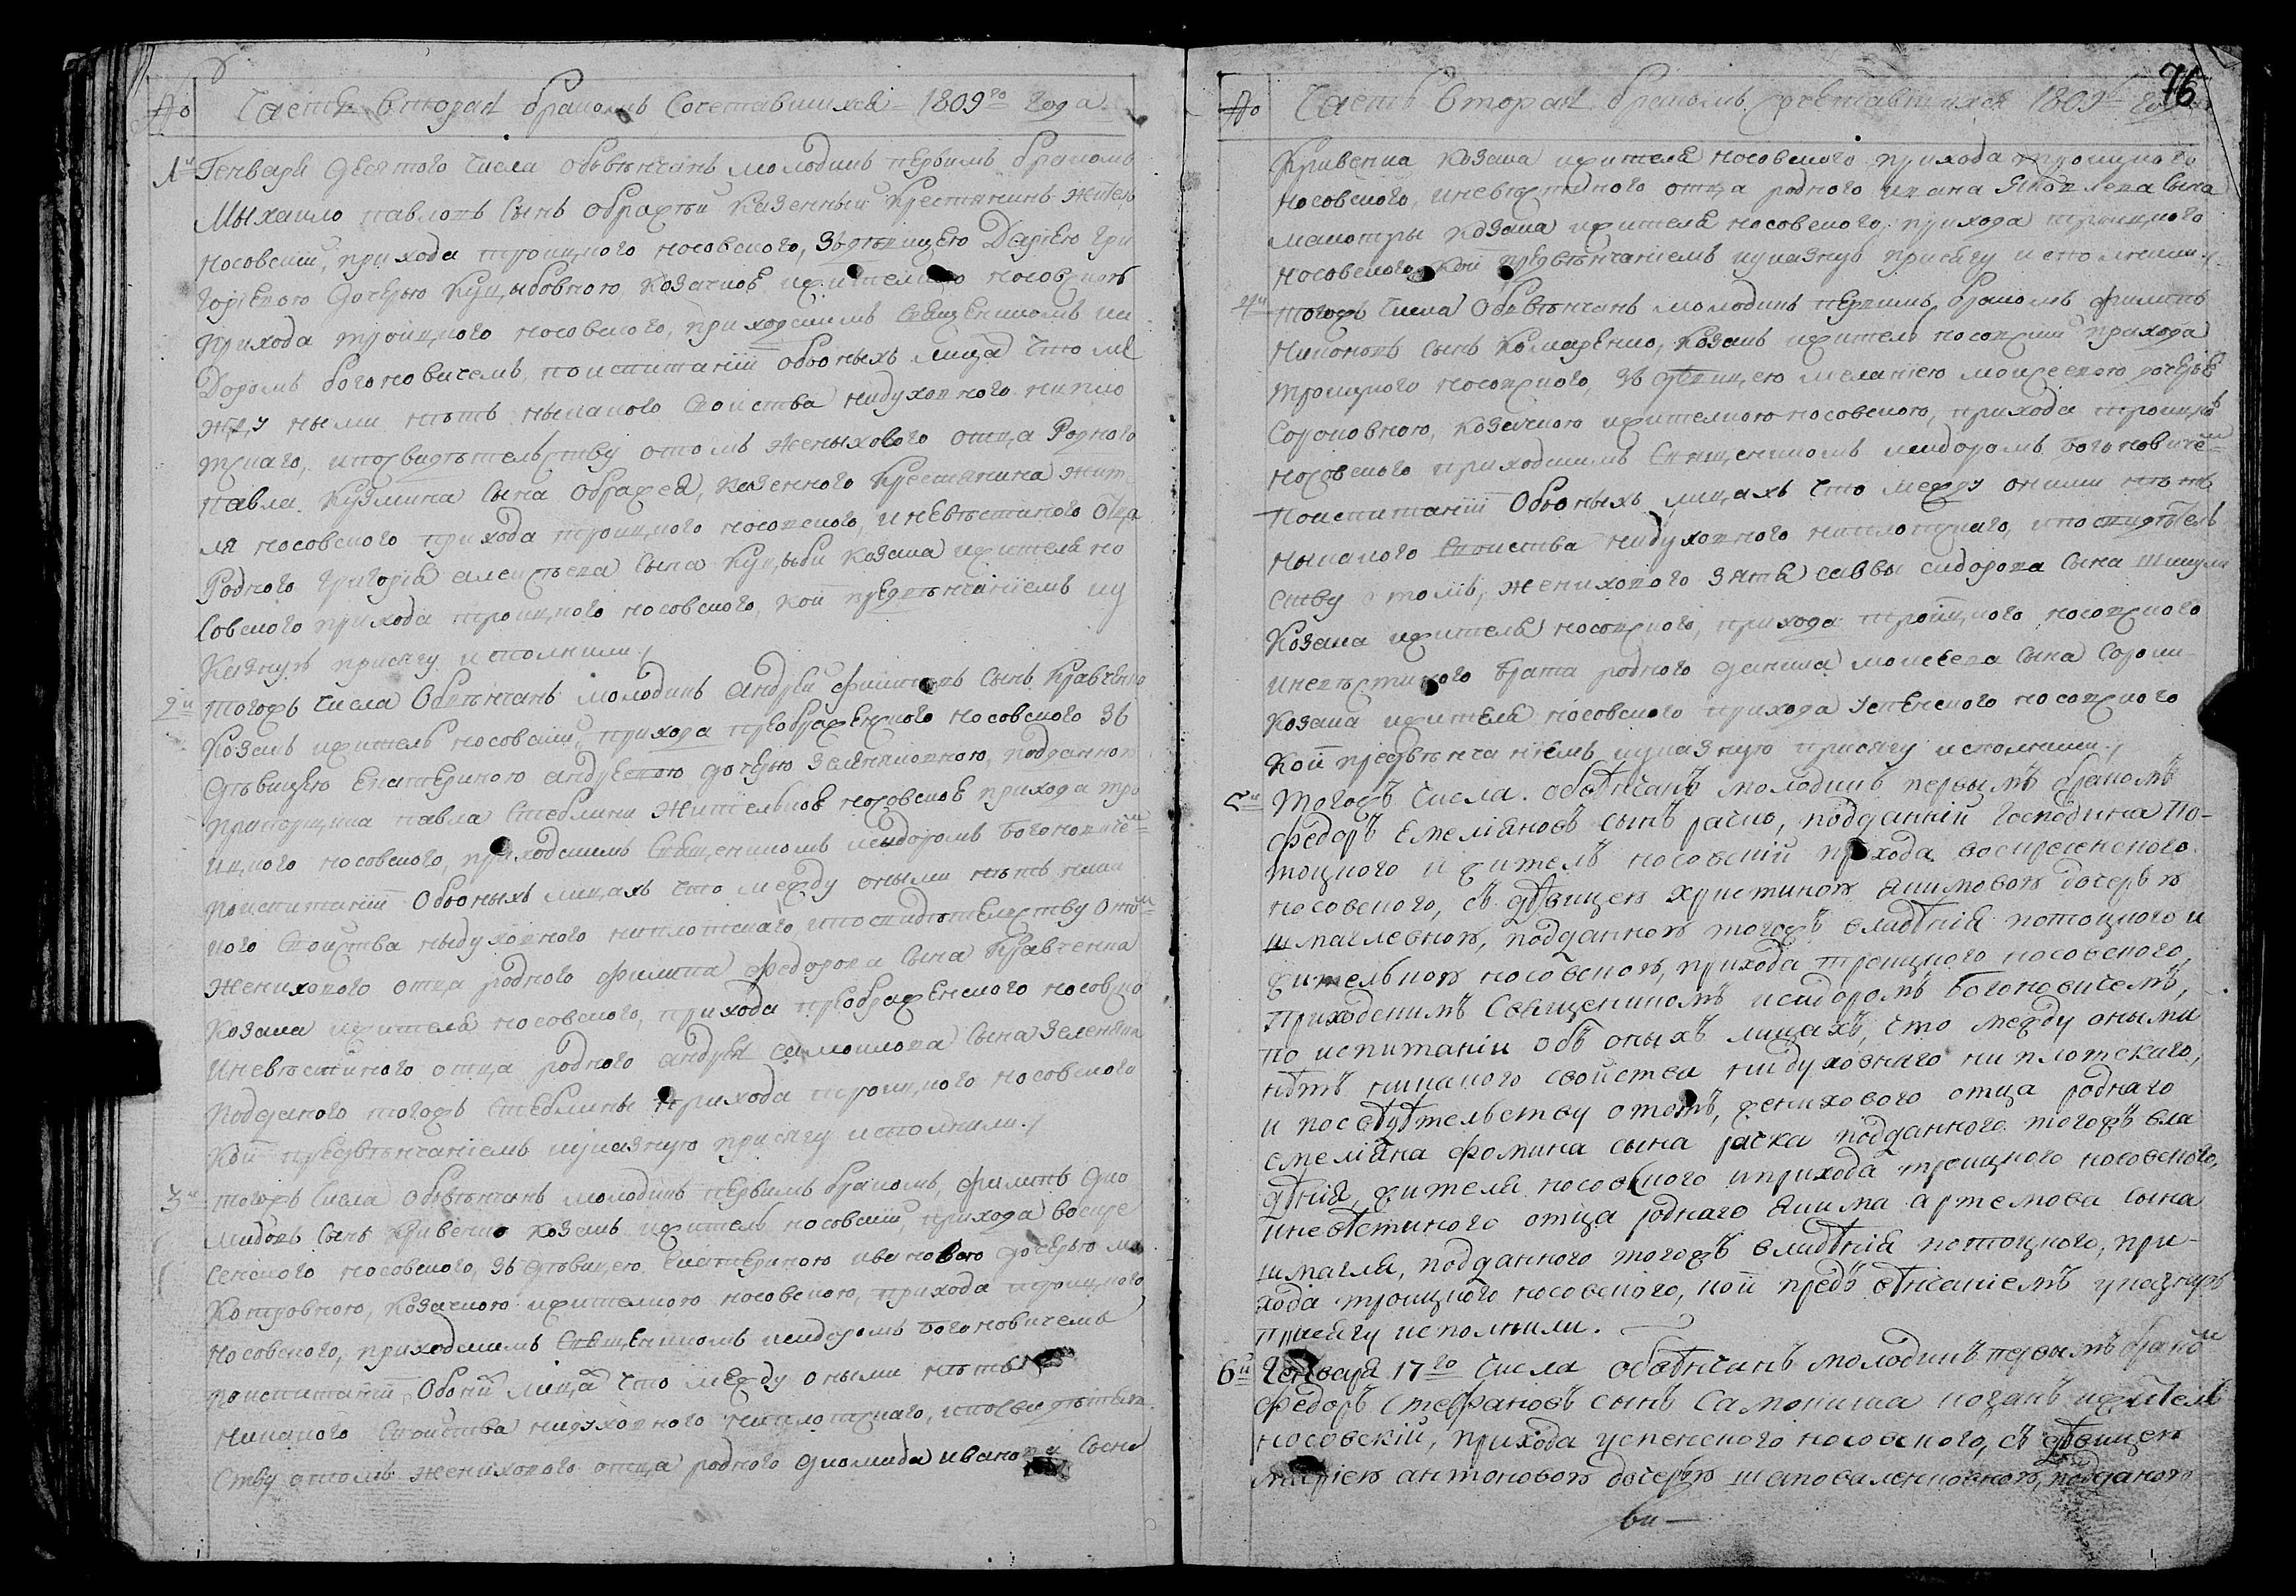 № Часть вторая бракомъ сочетавшихся 1809го года
1й Генваря десятого числа обвѣнчанъ молодикъ первимъ бракомъ
Мыхаило павловъ сынъ казенный крестянинъ житель
носовский, прихода троицкого носовского, зъ дѣвицею Дарiею гри
горiевою дочерью козачкое жителкою носовскою
прихода троицкого носовского, приходскимъ священикомъ иси
доромъ богоновичемъ, по испитанiи обоныхъ лицахъ что ме
жду ными нѣтъ ныкакого своиства нидуховного нипло
тскаго, и по свидѣтельству отомъ женыхового отца родного
павла кузмина сына казенного крестянина жит
ля носовского прихода троицкого носовского, и невѣстиного отца
Родного григорiя алексѣева сына козака жителя но
совского прихода троицкого носовского, кои предвѣнчанiемъ ук
казную присягу исполнили
2й тогожъ числа обвѣнчанъ молодикъ андрей филиповъ сынъ кравченко
козакъ житель носовский, прихода преображенского носовского зъ
дѣвицею екатериною андреевою дочерью зеленяковною, подданною
прапорщика павла стеблина жителькою носовскою прихода тро
ицкого носовского, приходскимъ священикомъ исидоромъ богоновичемъ
по испитанiи обоныхъ лицахъ что между оными нѣтъ ника
кого своиства ныдуховного ниплотскаго и по свидѣтельству отомъ
женихового отца родного филипа федорова сына кравченка
козака жителя носовского, прихода преображенского носовско
и невѣстиного отца родного андрея самоилова сына зеленяка
подданого тогожъ стеблина прихода троицкого носовского
кои предвѣнчанiемъ указную присягу исполнили
3й тогожъ числа обвѣнчанъ молодикъ первимъ бракомъ, филипъ дио
мидовъ сынъ кривенко козакъ житель носовский, прихода воскре
сенского носовского, зъ дѣвицею екатериною ивановою дочерью ма
котровною, козачкою жителкою носовскою, прихода троицкого
носовского, приходскимъ священикомъ исидоромъ богоновичемъ
по испитанiи обоных лицах что между оными нѣтъ
никакого своиства нидуховного ниплотскаго, и по свидѣтель
ству отомъ женихового отца родного диомида иванова сына
76
№ Часть вторая бракомъ сочетавшихся 1809 года
Кривенка козака жителя носовского прихода троицкого
носовского, и невѣстиного отца родного ивана яковлева сына
макотры козака жителя носовского, прихода троицкого
носовского, кои предвѣнчанiемъ указную присягу исполнили.
4й тогожъ числа обвѣнчанъ молодикъ первимъ бракомъ филипъ
никоновъ сынъ комаренко, козакъ житель носовский прихода
троицкого носовского, зъ дѣвицею меланiею моисеевою дочерью
сороковною, козачкою жителкою носовскою, прихода троицкого
носовского приходскимъ священикомъ исидоромъ богоновичемъ
по испитанiи обоныхъ лицахъ что между оними нѣтъ
ныкакого своиства нидуховного ниплотскаго, и по свидѣтель
ству о томъ, женихового зятя саввы сидорова сына
козака жителя носовского, прихода троицкого носовского
и невѣстиного брата родного данила моисеева сына сороки
козака жителя носовского прихода успенского носовского
кои предвѣнчанiемъ указную присягу исполнили
5й Тогожъ числа. обвѣнчанъ молодикъ первымъ бракомъ
федоръ емелiяновъ сынъ рачко, подданнiй господина По-
тоцкого и жителъ носовскiй прихода воскресенского
носовского, съ дѣвицею христиною якимовою дочерью
шмаглевною, подданною тогожъ владѣнiя потоцкого и
жителькою носовскою, прихода троицкого носовского,
приходскимъ священикомъ исидоромъ богоновичемъ,
по испитанiи объ оныхъ лицахъ, что между оными
нѣтъ никакого свойства нидуховнаго ни плотскаго,
и посвѣдѣтельству отомъ, женихового отца роднаго
емелiяна фомина сына рачка подданного тогожъ вла
дѣнiя, жителя носовского и прихода троицкого носовского,
и невѣстиного отца роднаго якима артемова сына
шмагля, подданного тогожъ владѣнiя потоцкого, при-
хода троицкого носовского, кои предъ вѣнчанiемъ указную
присягу исполнили.
6й Генваря 17го числа обвѣнчанъ молодикъ первымъ бракомъ
федоръ Стефановъ сынъ козакъ житель
носовскiй, прихода успенского носовского, съ дѣвицею
марiею антоновою дочерью шаповаленковною, подданою